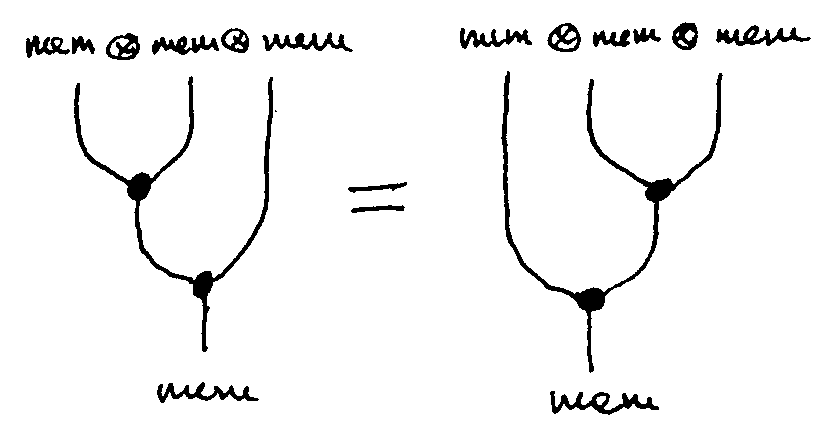 mem ⊗ mem ⊗ mem
mem ⊗ mem ⊗ mem
=
mem
mem